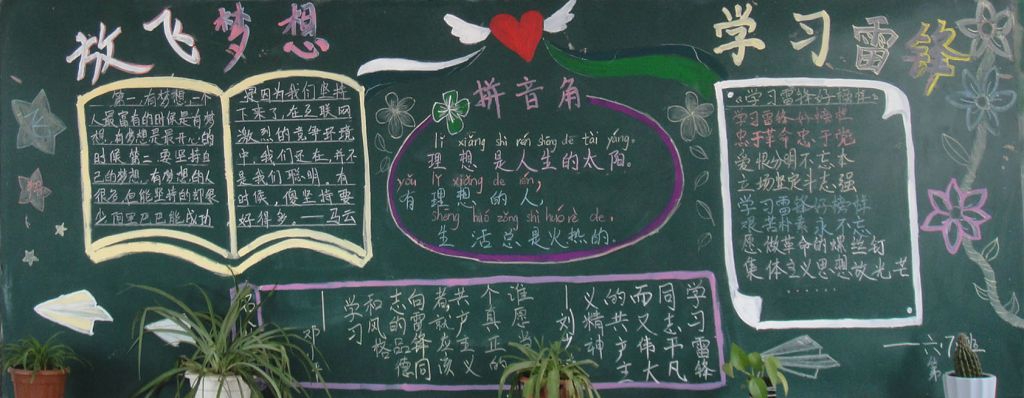 放飞梦想
学习雷锋
第一,有梦想。一个
人最富有的时候是有梦
想,有梦想是最开心的
时候第二要坚持自
己的梦想,有梦想的人
很多但能坚持的却很
少阿里巴巴能成功
是因为我们坚持
下来了,在互联网
激烈的竞争环境
中,我们还在,并不
是我们聪明。有
时候,傻坚持要
好得多。——马云
拼音角
lǐ xiǎng shì rén shēng de tài yáng。
理想是人生的太阳。
yǒu lǐ xiǎng de rén,
有理想的人,
shēng huó zǒng shì huǒ rè de。
生活总是火热的。
《学习雷锋好榜样》
学习雷锋好榜样
忠于革命忠于党
爱憎分明不忘本
立场坚定斗志强
学习雷锋好榜样
艰苦朴素永不忘
愿做革命的螺丝钉
集体主义思想放光芒
......
学习雷锋
同志平凡
而又伟大
的共产主
义精神
——刘少
谁愿当
个真正的
共产主义
者就应该
向雷锋同
志的品德
和风格
学习
——邓
一六.7班
第